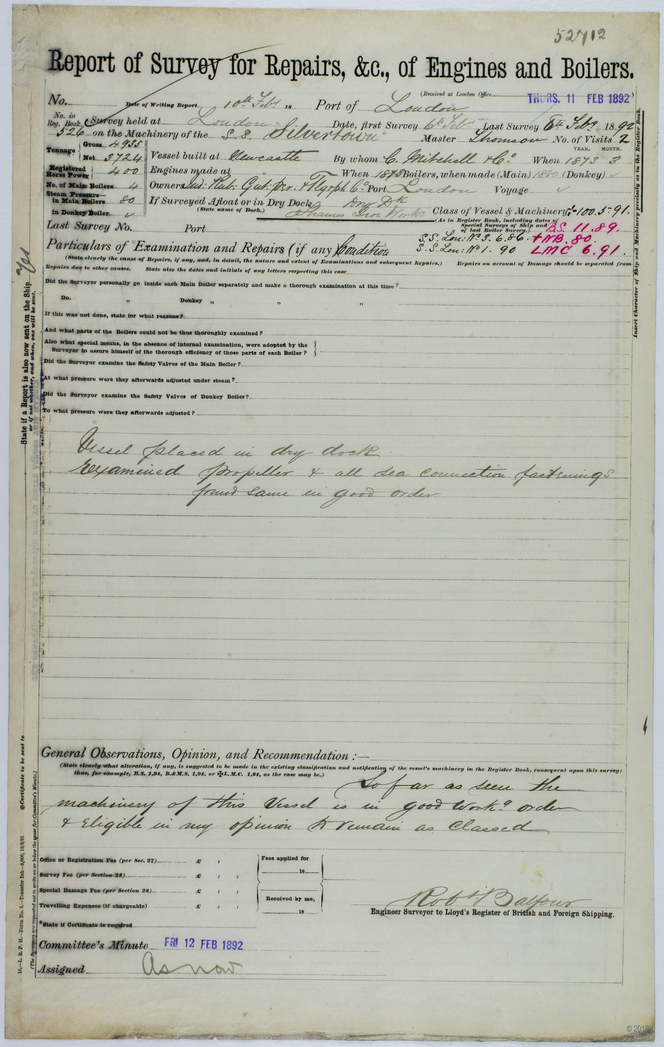 52712
Report of Survey for Repairs, &c., of Engines and Boilers.
(Received at London Office
THURS. 11 FEB 1892
No.
Date of Writing Report 10th Feby 18
Port of London
No. in Reg. Book.
Survey held at London
Date, first Survey 6th Feby Last Survey 8th Feby 1892
526 on the Machinery of the S.S. "Silvertown"
Master Thomson No. of Visits 2
Tonnage Gross 4935
Net 3724
Vessel built at Newcastle By whom C. Mitchell & Co. When 1873 3
YEAR. MONTH.
Registered Horse Power 400
Engines made at When 1873 Boilers, when made (Main) 1880 (Donkey) ✓
No. of Main Boilers 4
Owners Ind: Rub: Gut: Per: & Tlgrph Co. Port London Voyage ✓
Steam Pressure in Main Boilers 80
If Surveyed Afloat or in Dry Dock Dry Dk
(State name of Dock.) Thames Iron Works
in Donkey Boiler ✓
Class of Vessel & Machinery 100.5-91.
(As in Register Book, including dates of Special Surveys of Ship and of last Boiler Survey.)
Last Survey No. Port
B.S. 11.89.
S.S. Lon: No. 3. 6.86. + NB. 80.
S.S. Lon: No. 1. 90 LMC 6.91.
Particulars of Examination and Repairs (if any) Condition
(State clearly the cause of Repairs, if any, and, in detail, the nature and extent of Examinations and subsequent Repairs.) Repairs on account of Damage should be separated from
Repairs due to other causes. State also the dates and initials of any letters respecting this case
Did the Surveyor personally go inside each Main Boiler separately and make a thorough examination at this time?
Do. " Donkey " " "
If this was not done, state for what reasons?
And what parts of the Boilers could not be thus thoroughly examined?
Also what special means, in the absence of internal examination, were adopted by the
Surveyor to assure himself of the thorough efficiency of those parts of each Boiler?
Did the Surveyor examine the Safety Valves of the Main Boiler?
At what pressure were they afterwards adjusted under steam?
Did the Surveyor examine the Safety Valves of Donkey Boiler?
To what pressure were they afterwards adjusted?
Vessel placed in dry dock.
Examined propeller & all sea connection fastenings
found same in good order
General Observations, Opinion, and Recommendation:—
(State clearly what alteration, if any, is suggested to be made in the existing classification and notification of the vessel's machinery in the Register Book, consequent upon this survey:
thus, for example, B.S. 1,94, B&M.S. 1,94, or ✠L.M.C. 1,94, as the case may be.)
So far as seen the
machinery of this Vessel is in good Workg order
& Eligible in my opinion to remain as Classed
Office or Registration Fee (per Sec. 27) £ : :
Survey Fee (per Section 28) £ : :
Special Damage Fee (per Section 28) £ : :
Travelling Expenses (if chargeable) £ : :
Fees applied for
18
Received by me,
18
*State if Certificate is required
Robt Balfour
Engineer Surveyor to Lloyd's Register of British and Foreign Shipping.
Committee's Minute FRI 12 FEB 1892
Assigned As now
State if a Report is also now sent on the Ship. Yes
or if not whether, and when, one will be sent.
Insert Character of Ship and Machinery precisely as in the Register Book.